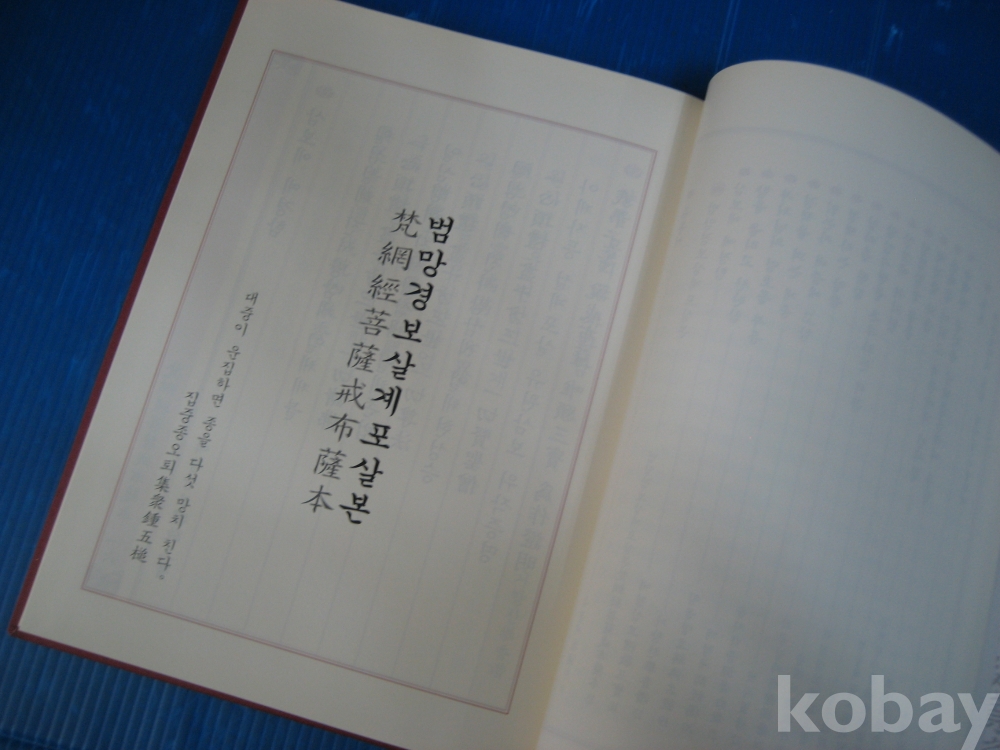 범망경보살계포살본
梵網經菩薩戒布薩本
대중이 운집하면 종을 다섯 망치 친다。
집중종오퇴集衆鍾五槌
kobay